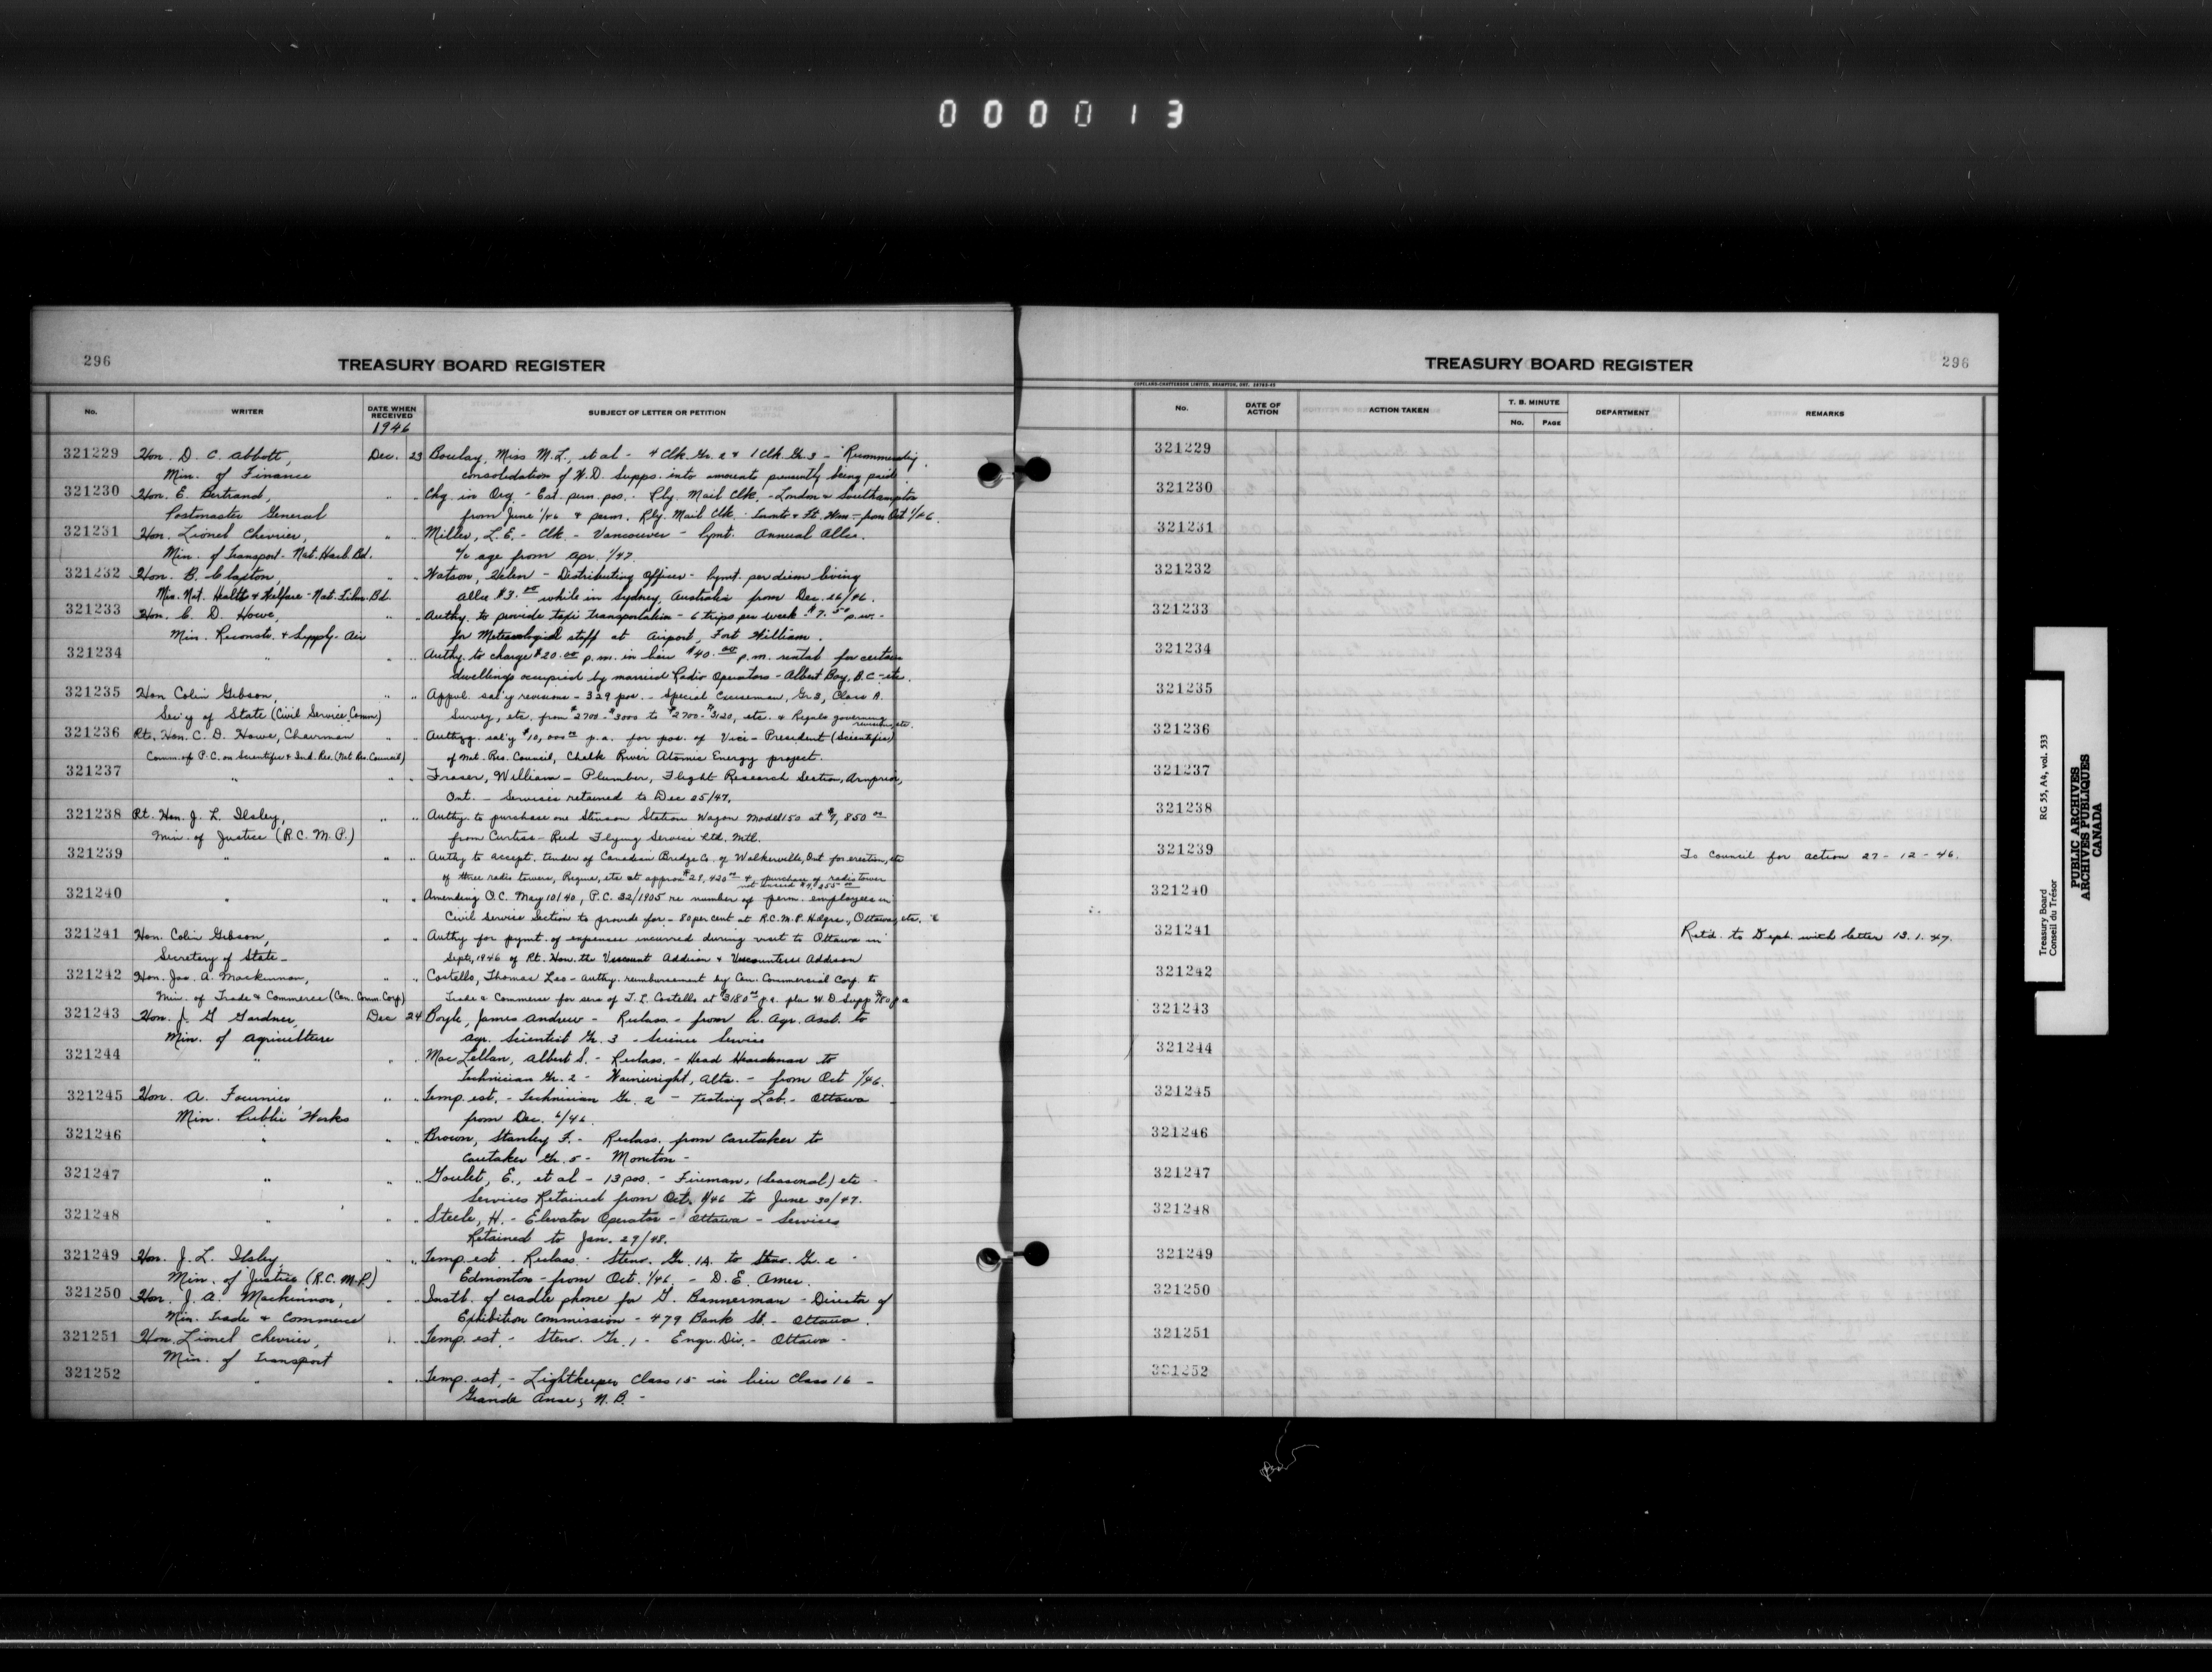 000013
296
TREASURY BOARD REGISTER
No.
WRITER
DATE WHEN RECEIVED
1946
SUBJECT OF LETTER OR PETITION
321229 Hon. D. C. Abbott, Dec. 23 Boulay, Miss M.L., et al - 4 Clk. Gr. 2 & 1 Clk. Gr. 3 - Recommending
Min. of Finance consolidation of W.D. Supps. into amounts presently being paid.
321230 Hon. E. Bertrand, " " Chg. in Org. - Est. perm. pos. - Rly. Mail Clk. - London & Southampton
Postmaster General from June 1/46 & perm. Rly. Mail Clk. - Toronto & Ft. Wm. - from Oct 1/46.
321231 Hon. Lionel Chevrier, " " Miller, L.E. - Clk. - Vancouver - Pymt. Annual Allce.
Min. of Transport - Nat. Harb. Bd. % age from Apr. 1/47.
321232 Hon. B. Claxton, " " Watson, Helen - Distributing Officer - Pymt. per diem living
Min. Nat. Health & Welfare - Nat. Film Bd. allce $3.00 while in Sydney, Australia from Dec. 26/46.
321233 Hon. C. D. Howe, " " Authy. to provide taxi transportation - 6 trips per week $7.50 p.w. -
Min. Reconstr. & Supply - Air for Meteorological staff at Airport, Fort William.
321234 " " " Authy. to charge $20.00 p.m. in lieu $40.00 p.m. rental for certain
dwellings occupied by married Radio Operators - Albert Bay, B.C. - etc.
321235 Hon Colin Gibson, " " Appvl. sal'y revisions - 329 pos. - Special Cruiseman, Gr 3, Class A.
Sec'y of State (Civil Service Comm) Survey, etc. from $2700 - $3000 to $2700 - $3120, etc. & Regulns governing
321236 Rt. Hon. C. D. Howe, Chairman " " Authzg. sal'y $10,000 00 p.a. for pos. of Vice-President (Scientific)
Comm. of P.C. on Scientific & Ind. Res. (Nat. Res. Council) of Nat. Res. Council, Chalk River Atomic Energy project.
321237 " " " Fraser, William - Plumber, Flight Research Section, Arnprior,
Ont. - Services retained to Dec 25/47.
321238 Rt. Hon. J. L. Ilsley, " " Authy. to purchase one Stinson Station Wagon Model 150 at $7,850 00
Min. of Justice (R.C.M.P.) from Curtiss-Reid Flying Service Ltd. Mtl.
321239 " " " Authy to accept. tender of Canadian Bridge Co. of Walkerville, Ont for erection, etc
of three radio towers, Regina, etc at approx $29,420 00 & purchase of radio tower
not exceed $4,255 00
321240 " " " Amending O.C. May 10/40, P.C. 32/1905 re number of perm. employees in
Civil Service Section to provide for - 80 per cent at R.C.M.P. Hdqrs., Ottawa, etc.
321241 Hon. Colin Gibson, " " Authy for pymt. of expenses incurred during visit to Ottawa in
Secretary of State - Sept., 1946 of Rt. Hon. the Viscount Addison & Viscountess Addison
321242 Hon. Jas. A. Mackinnon, " " Costello, Thomas Leo - Authy. reimbursement by Can. Commercial Corp. to
Min. of Trade & Commerce (Can. Comm. Corp) Trade & Commerce for servs of T. L. Costello at $3180 00 p.a. plus W. D. Supp $180 p a
321243 Hon. J. G Gardner, Dec 24 Boyle, James Andrew - Reclass. - from Gr. Agr. Asst. to
Min. of Agriculture Agr. Scientist Gr. 3 - Science Service
321244 " " " MacLellan, Albert S. - Reclass. - Head Herdsman to
Technician Gr. 2 - Wainwright, Alta. - from Oct 1/46.
321245 Hon. A. Fournier " " Temp. est. - Technician Gr. 2 - Testing Lab. - Ottawa
Min. Public Works from Dec. 6/46.
321246 " " " Brown, Stanley F. - Reclass. from Caretaker to
Caretaker Gr. 5 - Moncton -
321247 " " " Goulet, E., et al - 13 pos. - Fireman, (Seasonal) etc -
Services Retained from Oct. 1/46 to June 30/47.
321248 " " " Steele, H. - Elevator Operator - Ottawa - Services
Retained to Jan. 29/48.
321249 Hon. J. L. Ilsley, " Temp. est - Reclass. - Steno. Gr. 1A. to Steno. Gr. 2 -
Min. of Justice (R.C.M.P.) Edmonton - from Oct. 1/46. - D. E. Amer.
321250 Hon. J. A. Mackinnon, " " Instl. of cradle phone for G. Bannerman - Director of
Min. Trade & Commerce Exhibition Commission - 479 Bank St. - Ottawa.
321251 Hon. Lionel Chevrier, " " Temp. est - Steno. Gr. 1 - Engr. Div. - Ottawa -
Min. of Transport
321252 " " " Temp. est. - Lightkeeper Class 15 in lieu Class 16 -
Grande Anse, N.B. -
TREASURY BOARD REGISTER
296
COPELAND-CHATTERSON LIMITED, BRAMPTON, ONT.
No.
DATE OF ACTION
ACTION TAKEN
T. B. MINUTE
No. PAGE
DEPARTMENT
REMARKS
321229
321230
321231
321232
321233
321234
321235
321236
321237
321238
321239 To Council for action 27-12-46.
321240
321241 Ret'd. to Dept. with letter 13.1.47.
321242
321243
321244
321245
321246
321247
321248
321249
321250
321251
321252
Treasury Board RG 55, A4, vol. 533
Conseil du Trésor
PUBLIC ARCHIVES
ARCHIVES PUBLIQUES
CANADA